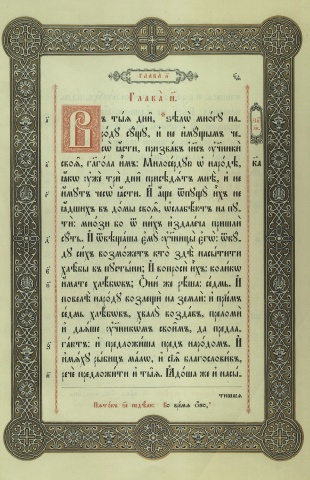 ГЛАВА̀ И҃.
Глава̀ и҃.
Въ ты́ѧ дни̑, ѕѣлѡ̀ мно́гꙋ на-
ро́дꙋ сꙋ́щꙋ, и҆ не и҆мꙋ́щымъ че-
сѡ̀ ꙗ҆́сти, призва́въ і҆и҃съ ᲂу҆ченикѝ
своѧ̑, гл҃го́ла и҆̀мъ: Милосе́рдꙋю ѡ҆ наро́дѣ,
ꙗ҆́кѡ ᲂу҆жѐ трѝ дни̑ присѣдѧ́тъ мнѣ̀, и҆ не
и҆́мꙋтъ чесѡ̀ ꙗ҆́сти. И҆ а҆́ще ѿпꙋщꙋ̀ и҆̀хъ не
ꙗ҆́дшихъ въ до́мы своѧ̑, ѡ҆слабѣ́ютъ на пꙋ-
тѝ: мно́зи бо ѿ ни́хъ и҆здале́ча пришлѝ
сꙋ́ть. И҆ ѿвѣща́ша є҆мꙋ̀ ᲂу҆чн҃цы̀ є҆гѡ̀: ѿкꙋ́-
дꙋ си́хъ возмо́жетъ кто̀ здѣ̀ насы́тити
хлѣ̑бы въ пꙋсты́ни; И҆ вопросѝ и҆̀хъ: коли́кѡ
и҆́мате хлѣ́бѡвъ; Ѻ҆ни́ же рѣ́ша: се́дмь. И҆
повелѣ̀ наро́дꙋ возлещѝ на землѝ: и҆ прїе́мь
се́дмь хлѣ́бѡвъ, хвалꙋ̀ возда́въ, преломѝ
и҆ даѧ́ше ᲂу҆чн҃кѡ́мъ свои̑мъ, да предлага́-
ютъ: и҆ предложи́ша пред̾ наро́домъ. И҆
и҆мѧ́хꙋ ры́бицъ ма́лѡ, и҆ сїѧ̑ блг҃ослови́въ,
речѐ предложи́ти и҆ ты̑ѧ. Ꙗ҆до́ша же и҆ насы́-
тишасѧ
Во вре́мѧ ѻ҆́но,